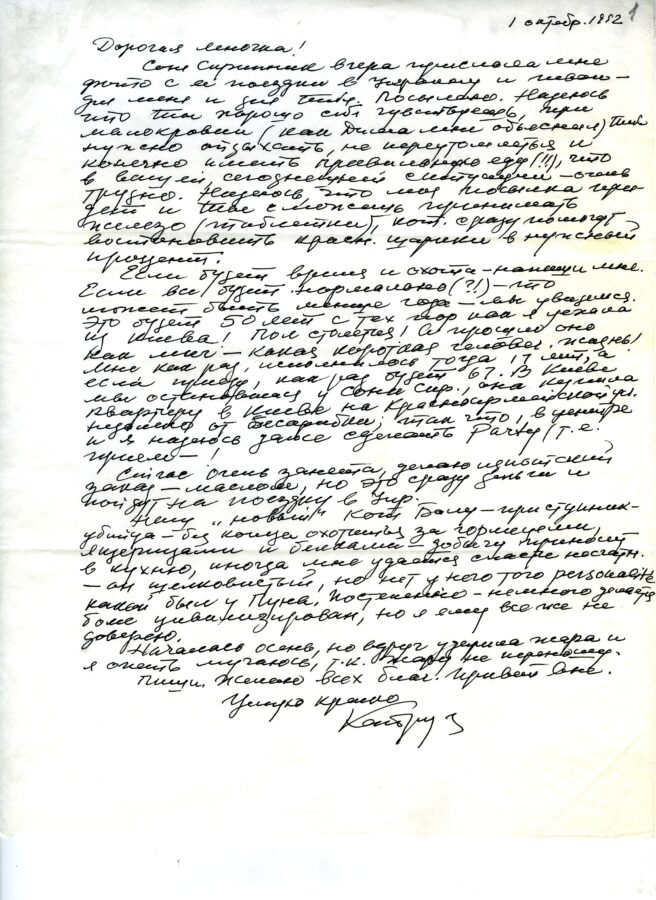 1 октябр. 1992
1
Дорогая Леночка!
Соня Скрипник вчера прислала мне
фото с её поездки в Украину и
для меня и для Тебя. Посылаю. Надеюсь
что Ты хорошо себя чувствуешь, при
малокровии (как Дима мне объяснил) Тебе
нужно отдыхать, не переутомляться и
конечно иметь правильную еду (!!), что
в вашей, сегодняшней ситуации – очень
трудно. Надеюсь что моя посылка при-
дет и Ты сможешь принимать
железо (таблетки), кот. сразу помогут
восстановить красн. шарики в нужный
процент.
Если будет время и охота – напиши мне.
Если всё будет нормально (?!) – то
может быть меньше года – мы увидимся.
Это будет 50 лет с тех пор как я уехала
из Киева! Пол столетия! А прошло оно
как миг – какая короткая человеч. жизнь!
Мне как раз, исполнилось тогда 17 лет, а
если приеду, как раз будет 67. В Киеве
мы остановимся у Сони Скр., она купила
квартиру в Киеве на Красноармейской ул.
недалеко от Бесарабки, так что, в центре
и я надеюсь даже сделать Party (т.е.
приём – !
Сейчас очень занята, делаю
заказ – маслом, но это сразу деньги и
пойдут на поездку в Укр.
Мой „новый" кот Балу – преступник –
убийца – без конца охотится за горлицами,
ящерицами и белками – добычу приносит
в кухню, иногда мне удается спасти несчастн.
– он шелковистый, но нет у него того personalité
какой был у Пуна. Постепенно – немного делается
более цивилизирован, но я ему все же не
доверяю.
Началась осень, но вдруг ударила жара и
я опять мучаюсь, т.к. жару не переношу.
Пиши. Желаю всех благ. Привет Ане.
Целую крепко